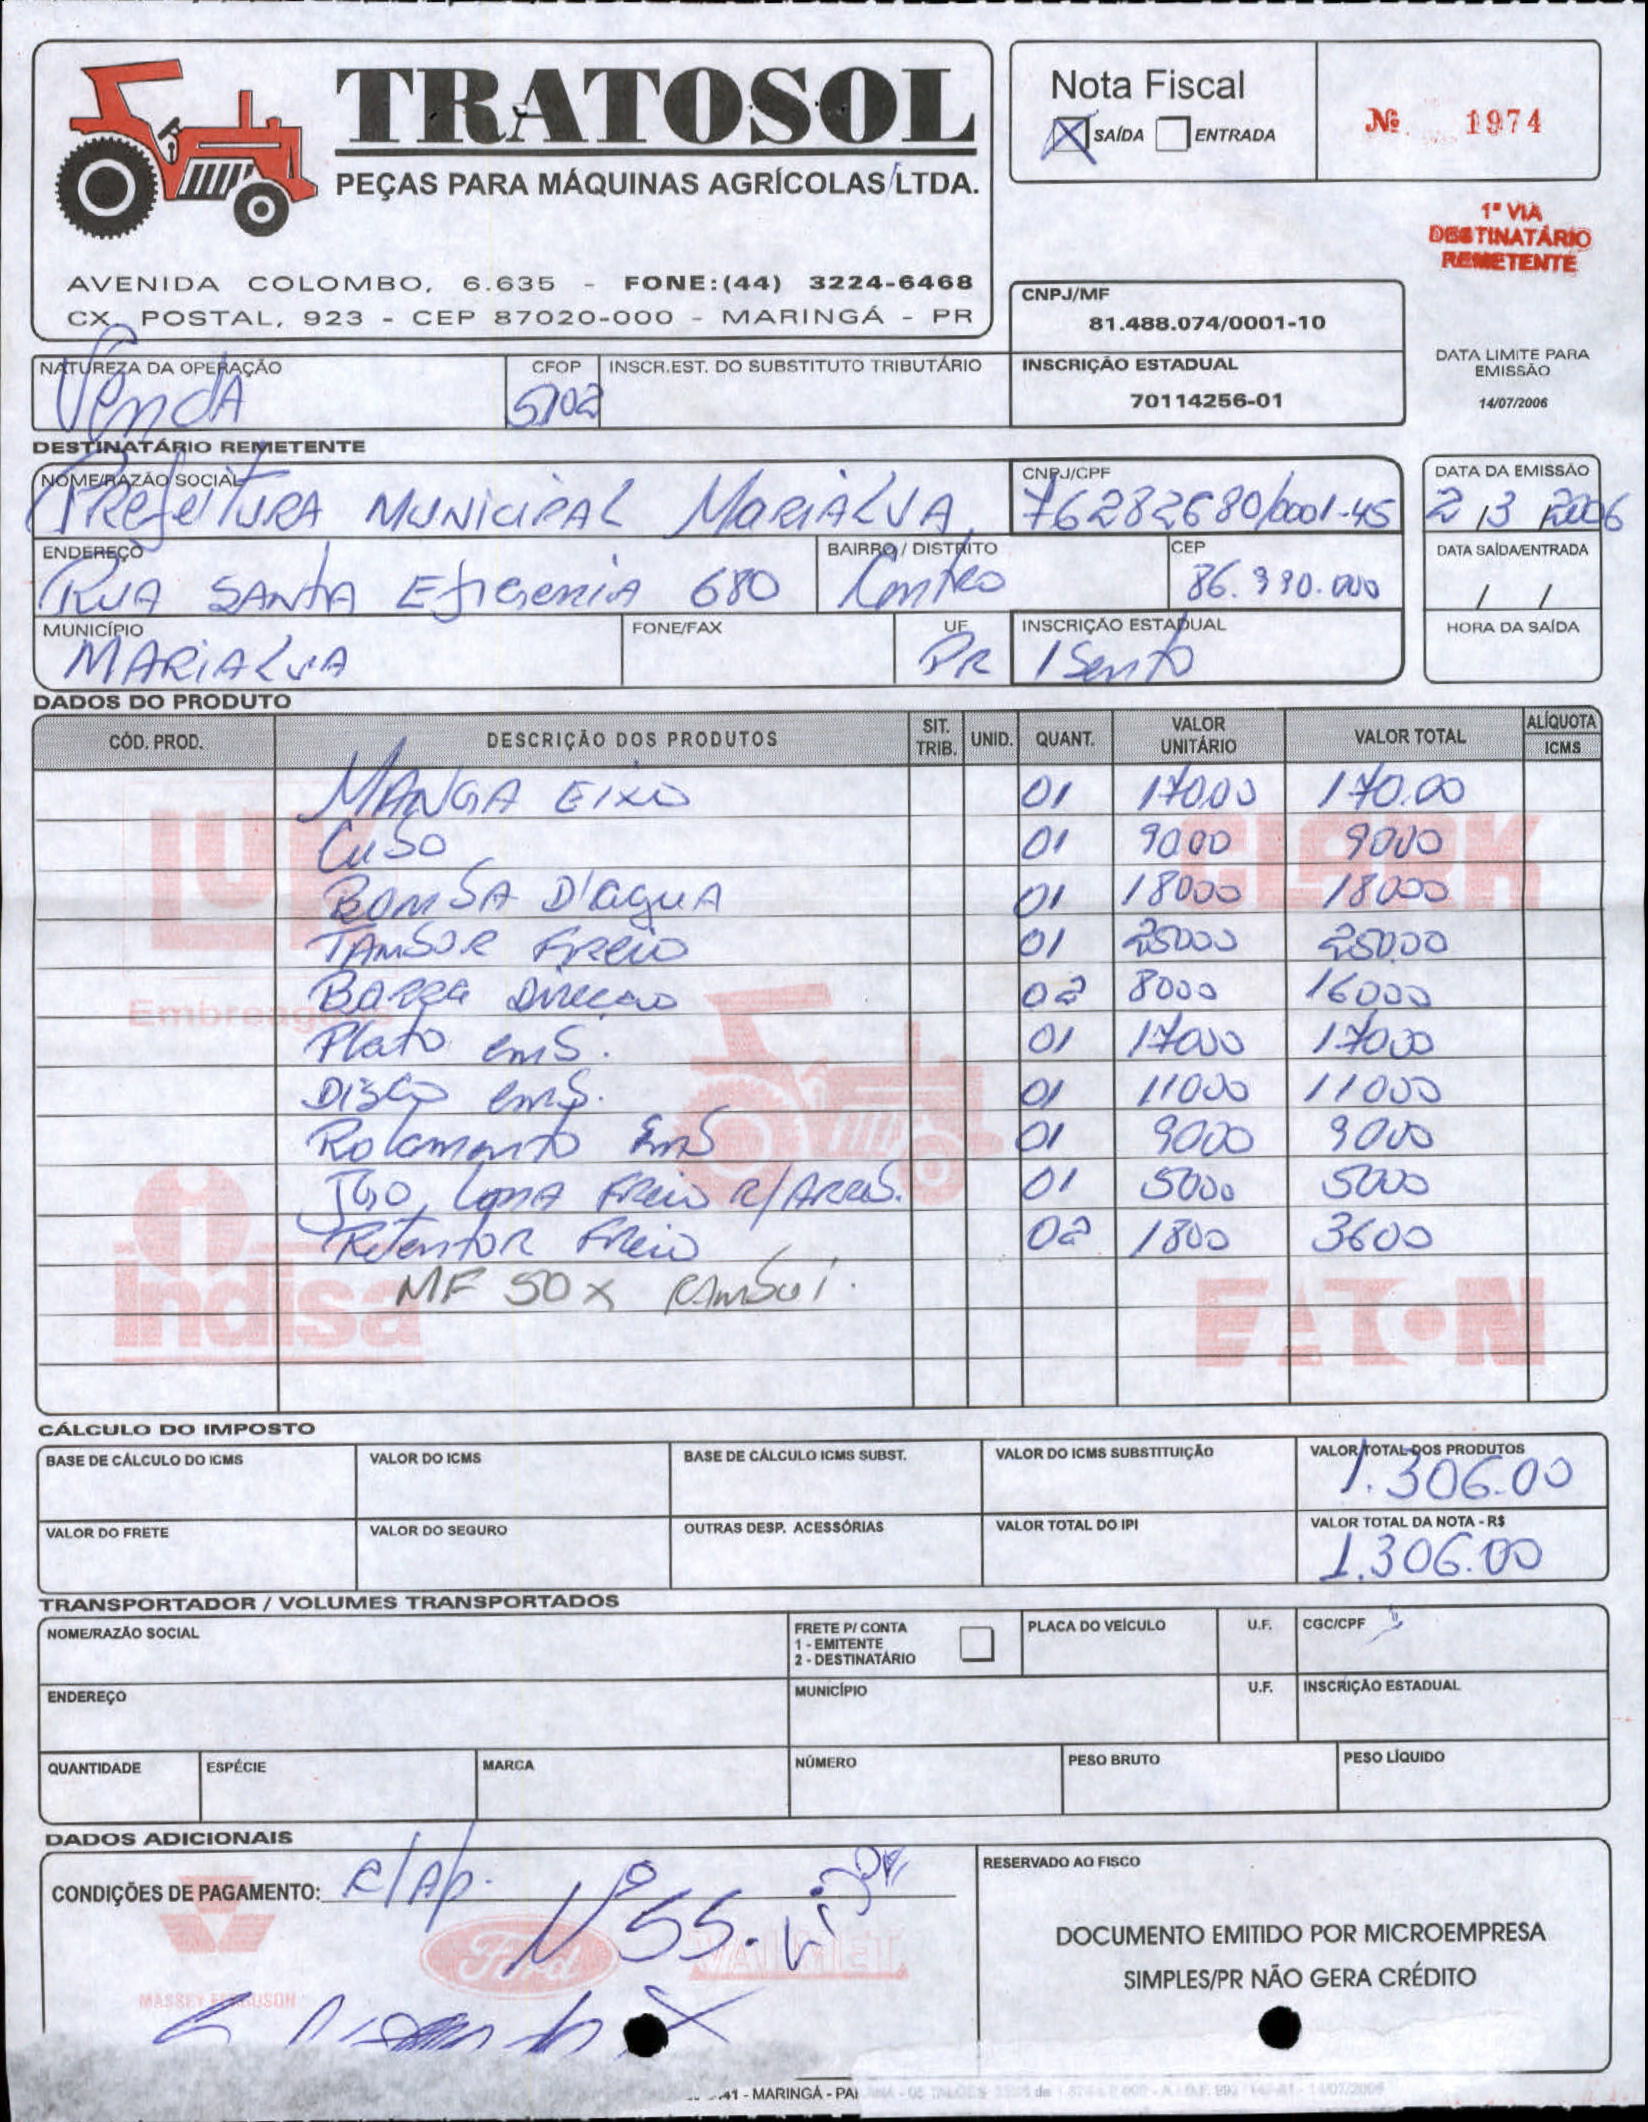 TRATOSOL
PEÇAS PARA MÁQUINAS AGRÍCOLAS LTDA.
AVENIDA COLOMBO, 6.635 - FONE:(44) 3224-6468
CX. POSTAL, 923 - CEP 87020-000 - MARINGÁ - PR
Nota Fiscal
SAÍDA ENTRADA
Nº 1974
1ª VIA
DESTINATÁRIO
REMETENTE
CNPJ/MF
81.488.074/0001-10
INSCRIÇÃO ESTADUAL
70114256-01
DATA LIMITE PARA
EMISSÃO
14/07/2006
NATUREZA DA OPERAÇÃO CFOP INSCR.EST. DO SUBSTITUTO TRIBUTÁRIO
Venda 5102
DESTINATÁRIO REMETENTE
NOME/RAZÃO SOCIAL CNPJ/CPF DATA DA EMISSÃO
Prefeitura Municipal Marialva 76282680/0001-45 2 / 3 / 2006
ENDEREÇO BAIRRO / DISTRITO CEP DATA SAÍDA/ENTRADA
Rua Santa Efigenia 680 Centro 86.990.000 / /
MUNICÍPIO FONE/FAX UF INSCRIÇÃO ESTADUAL HORA DA SAÍDA
Marialva PR Isento
DADOS DO PRODUTO
CÓD. PROD. DESCRIÇÃO DOS PRODUTOS SIT. TRIB. UNID. QUANT. VALOR UNITÁRIO VALOR TOTAL ALÍQUOTA ICMS
Manga Eixo 01 170.00 170.00
Cubo 01 9000 9000
Bomba D'agua 01 18000 18000
Tambor Freio 01 25000 250.00
Barra Direcao 02 8000 16000
Plato emb. 01 17000 17000
Disco emb. 01 11000 11000
Rolamento Emb 01 9000 9000
Jgo. Lona Freio 01 5000 5000
Retentor Freio 02 1800 3600
MF 50 X
LUK
Embreagens
CLARK
indisa
EATON
CÁLCULO DO IMPOSTO
BASE DE CÁLCULO DO ICMS VALOR DO ICMS BASE DE CÁLCULO ICMS SUBST. VALOR DO ICMS SUBSTITUIÇÃO VALOR TOTAL DOS PRODUTOS
1.306.00
VALOR DO FRETE VALOR DO SEGURO OUTRAS DESP. ACESSÓRIAS VALOR TOTAL DO IPI VALOR TOTAL DA NOTA - R$
1.306.00
TRANSPORTADOR / VOLUMES TRANSPORTADOS
NOME/RAZÃO SOCIAL FRETE P/ CONTA PLACA DO VEÍCULO U.F. CGC/CPF
1 - EMITENTE
2 - DESTINATÁRIO
ENDEREÇO MUNICÍPIO U.F. INSCRIÇÃO ESTADUAL
QUANTIDADE ESPÉCIE MARCA NÚMERO PESO BRUTO PESO LÍQUIDO
DADOS ADICIONAIS
CONDIÇÕES DE PAGAMENTO:
Nº 55.
MASSEY FERGUSON
Ford
VALMET
RESERVADO AO FISCO
DOCUMENTO EMITIDO POR MICROEMPRESA
SIMPLES/PR NÃO GERA CRÉDITO
41 - MARINGÁ -